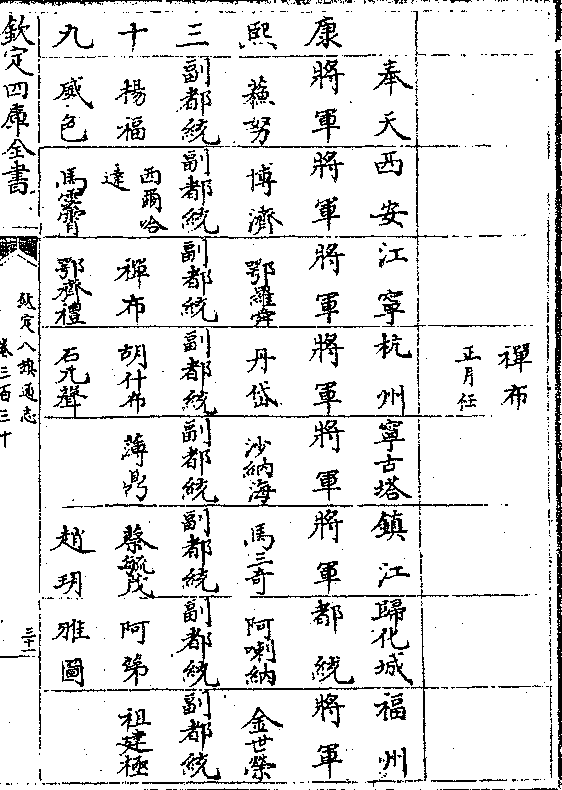 禪布
正月任
奉天 西安 江寧 杭州 寧古塔 鎮江 歸化城 福州
康 將軍 將軍 將軍 將軍 將軍 將軍 都統 將軍
熙 蘓努 博濟 鄂羅舜 丹岱 沙納海 馬三奇 阿喇納 金世榮
三 副都統 副都統 副都統 副都統 副都統 副都統 副都統 副都統
十 楊福 西爾哈達 禪布 胡什布 薄鼎 蔡毓茂 阿第 祖建極
九 盛色 馬雲霄 鄂齊禮 趙玥 雅圖
欽定四庫全書
欽定八旗通志
卷三百三十
三十一